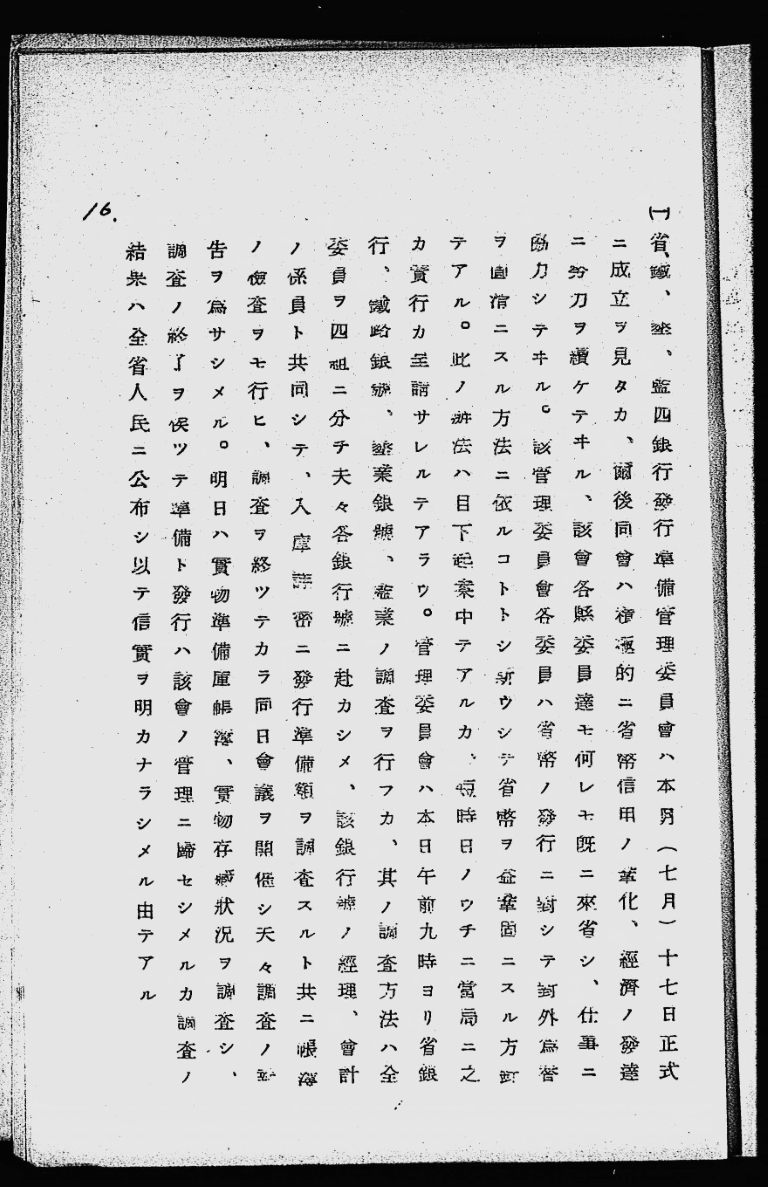 (一)省、鐵、墾、鹽四銀行發行準備管理委員會ハ本月(七月)十七日正式
ニ成立ヲ見タカ、爾後同會ハ積極的ニ省幣信用ノ鞏化、經濟ノ發達
ニ努力ヲ續ケテヰル、該會各縣委員達モ何レモ既ニ來省シ、仕事ニ
助力シテヰル。該管理委員會各委員ハ省幣ノ發行ニ對シテ對外為替
ヲ劃清ニスル方法ニ依ルコトトシ斯ウシテ省幣ヲ益鞏固ニスル方針
テアル。此ノ辦法ハ目下起案中テアルカ、短時日ノウチニ當局ニ之
カ實行カ呈請サレルテアラウ。管理委員會ハ本日午前九時ヨリ省銀
行、鐵路銀號、墾業銀號、鹽業ノ調査ヲ行フカ、其ノ調査方法ハ全
委員ヲ四組ニ分チ夫々各銀行號ニ赴カシメ、該銀行號ノ經理、會計
ノ係員ト共同シテ、入庫詳密ニ發行準備額ヲ調査スルト共ニ帳簿
ノ檢査ヲモ行ヒ、調査ヲ終ツテカラ同日會議ヲ開催シ夫々調査ノ
告ヲ為サシメル。明日ハ實物準備庫帳簿、實物存儲狀況ヲ調査シ、
調査ノ終了ヲ俟ツテ準備ト發行ハ該會ノ管理ニ歸セシメルカ調査ノ
結果ハ全省人民ニ公布シ以テ信實ヲ明カナラシメル由テアル
16.